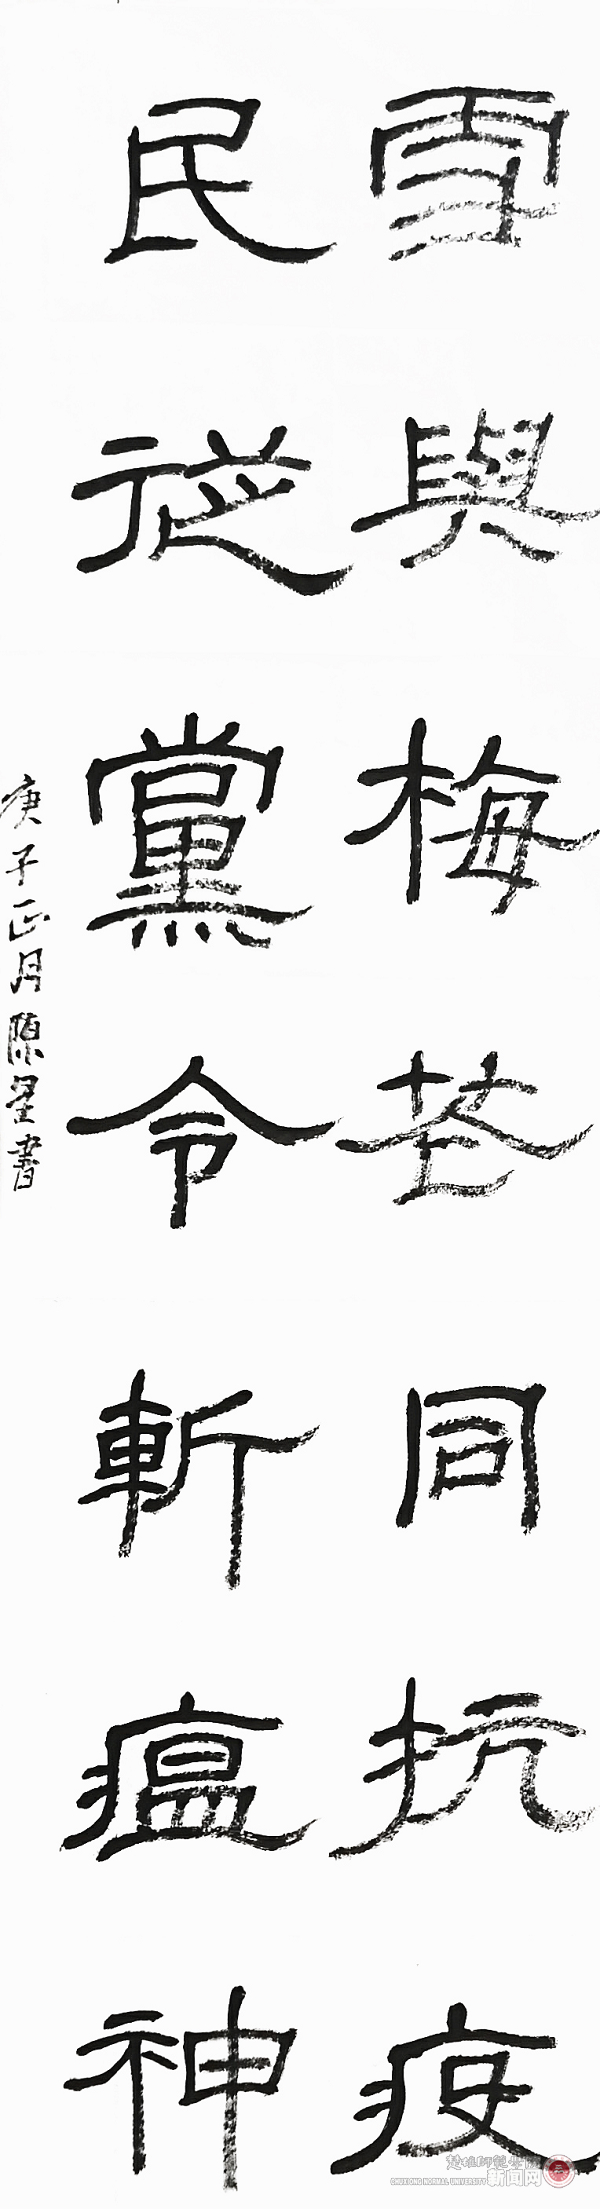 雪與梅花同抗疫
民從黨令斬瘟神
庚子正月陳星書
楚雄師範學院
CHUXIONG NORMAL UNIVERSITY
新闻网